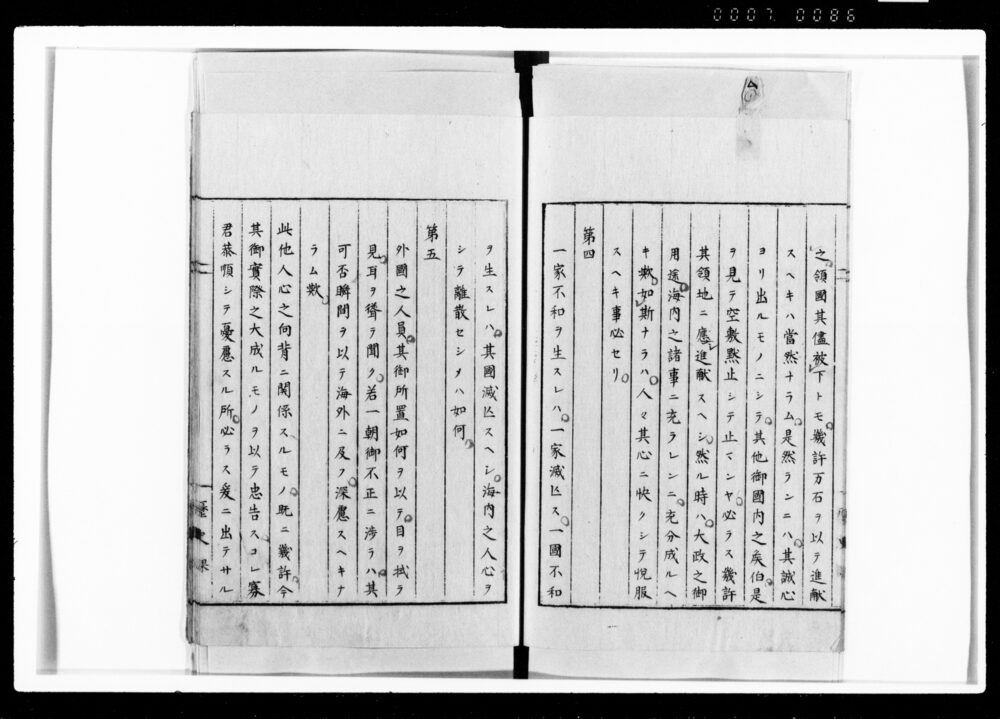 0007 0086
之領國其儘被下トモ幾許万石ヲ以テ進献
スヘキハ當然ナラム是然ランニハ其誠心
ヨリ出ルモノニシテ其他御國内之矦伯是
ヲ見テ空敷黙止シテ止マンヤ必ラス幾許
其領地ニ應進献スヘシ然ル時ハ大政之御
用途海内之諸事ニ充ラレンニ充分成ルヘ
キ欤如斯ナラハ人々其心ニ快クシテ悦服
スヘキ事必セリ
第四
一家不和ヲ生スレハ一家滅亡ス一國不和
ヲ生スレハ其國滅亡スヘシ海内之人心ヲ
シテ離散セシメハ如何
第五
外國之人員其御所置如何ヲ以テ目ヲ拭テ
見耳ヲ濟テ聞ク若一朝御不正ニ渉ラハ其
可否瞬間ヲ以テ海外ニ及フ深慮スヘキナ
ラム欤
此他人心之向背ニ関係スルモノ既ニ幾許今
其御實際之大成ルモノヲ以テ忠告スコレ寡
君恭順シテ憂慮スル所必ラス爰ニ出テサル
歴史課